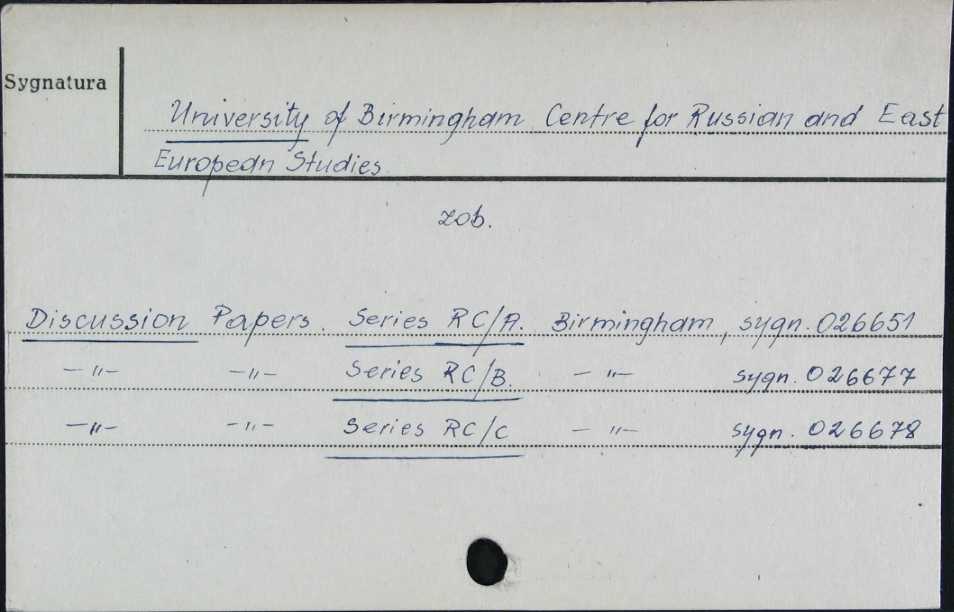 Sygnatura
University of Birmingham Centre for Russian and East
European Studies
zob.
Discussion Papers. Series RC/A. Birmingham, sygn. 026651
—"— —"— Series RC/B. —"— sygn. 026677
—"— —"— Series RC/C —"— sygn. 026678